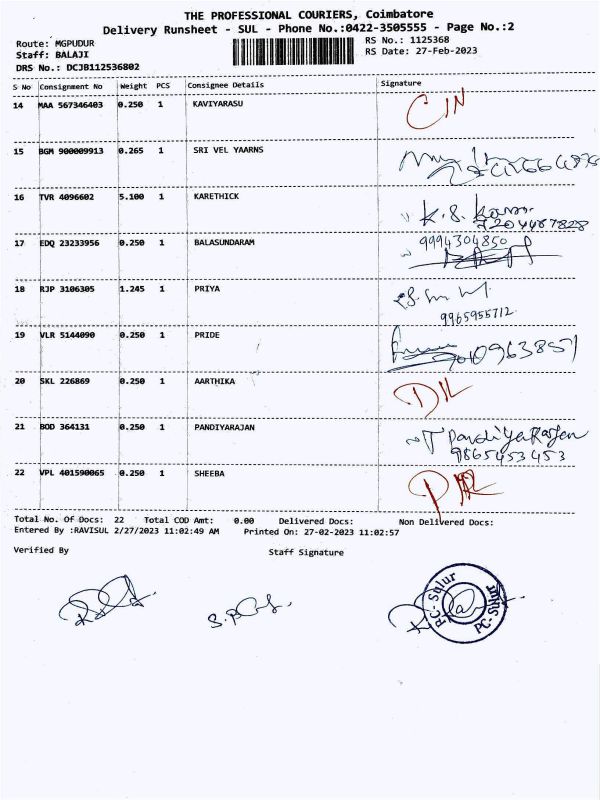 THE PROFESSIONAL COURIERS, Coimbatore
Delivery Runsheet - SUL - Phone No.:0422-3505555 - Page No.:2
Route: MGPUDUR
Staff: BALAJI
DRS No.: DCJB112536802
RS No.: 1125368
RS Date: 27-Feb-2023
S No Consignment No Weight PCS Consignee Details Signature
14 MAA 567346403 0.250 1 KAVIYARASU
15 BGM 900009913 0.265 1 SRI VEL YAARNS
16 TVR 4096602 5.100 1 KARETHICK K.S.
7204487828
17 EDQ 23233956 0.250 1 BALASUNDARAM 9994304850
18 RJP 3106305 1.245 1 PRIYA
9965955712
19 VLR 5144090 0.250 1 PRIDE
20 SKL 226869 0.250 1 AARTHIKA
21 BOD 364131 0.250 1 PANDIYARAJAN T PandiyaRajan
9865453453
22 VPL 401590065 0.250 1 SHEEBA
Total No. Of Docs: 22 Total COD Amt: 0.00 Delivered Docs: Non Delivered Docs:
Entered By :RAVISUL 2/27/2023 11:02:49 AM Printed On: 27-02-2023 11:02:57
Verified By Staff Signature
PC-Sulur PC-Sulur